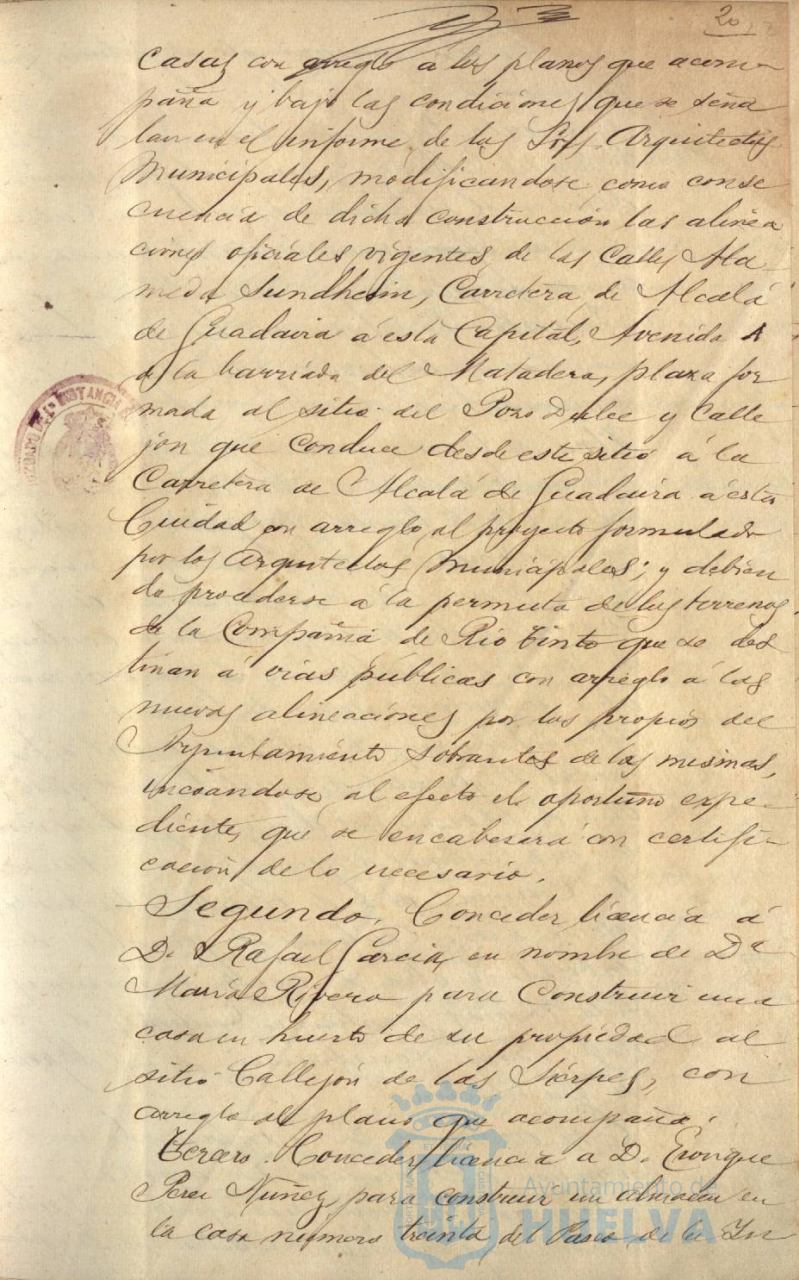 20
casas con arreglo á los planos que acom-
paña y bajo las condiciones que se seña
lan en el informe de los Sres Arquitectos
Municipales, modificandose como conse
cuencia de dicha construcción las alinea
ciones oficiales vigentes de las Calles Ala-
meda Sundheim, Carretera de Alcalá
de Guadaira á esta Capital, Avenida A
de la barriada del Matadero, plaza for
mada al sitio del Pozo Dulce y Calle
jón que conduce desde este sitio á la
Carretera de Alcalá de Guadaira á esta
Ciudad con arreglo al proyecto formulado
por los Arquitectos Municipales; y debien
do procederse á la permuta de los terrenos
de la Compañia de Rio Tinto que se des
tinan á vias públicas con arreglo á las
nuevas alineaciones por los propios del
Ayuntamiento sobrantes de las mismas,
incoandose al efecto el oportuno expe-
diente, que se encabesará con certifi-
cación de lo necesario.
Segundo. Conceder licencia á
D. Rafael Garcia, en nombre de Dª
Maria Rivero para Construir una
casa en huerto de su propiedad al
sitio Callejón de las Sierpes, con
arreglo al plano que acompaña.
tercero. Conceder licencia a D. Enrique
Perez Nuñez, para construir un almacen en
la casa numero treinta del Paseo de la In
Ayuntamiento de
HUELVA